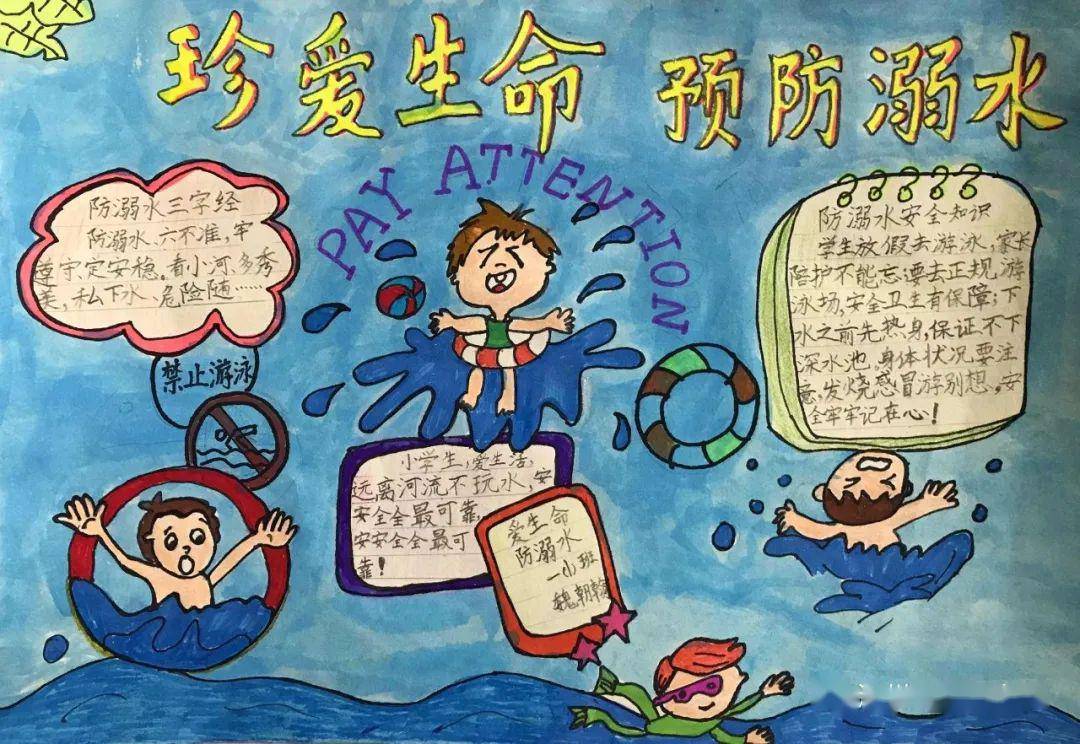 珍爱生命 预防溺水
PAY ATTENTION
防溺水三字经
防溺水、六不准,牢
遵守,定安稳。看小河,多秀
美,私下水、危险随……
禁止游泳
防溺水安全知识
学生放假去游泳,家长
陪护不能忘;要去正规游
泳场,安全卫生有保障;下
水之前先热身,保证不下
深水池,身体状况要注
意,发烧感冒游别想,安
全牢牢记在心!
小学生,爱生活,
远离河流不玩水,安
安全全最可靠,
安安全全最可
靠!
爱生命
防溺水
一(1)班
魏朝